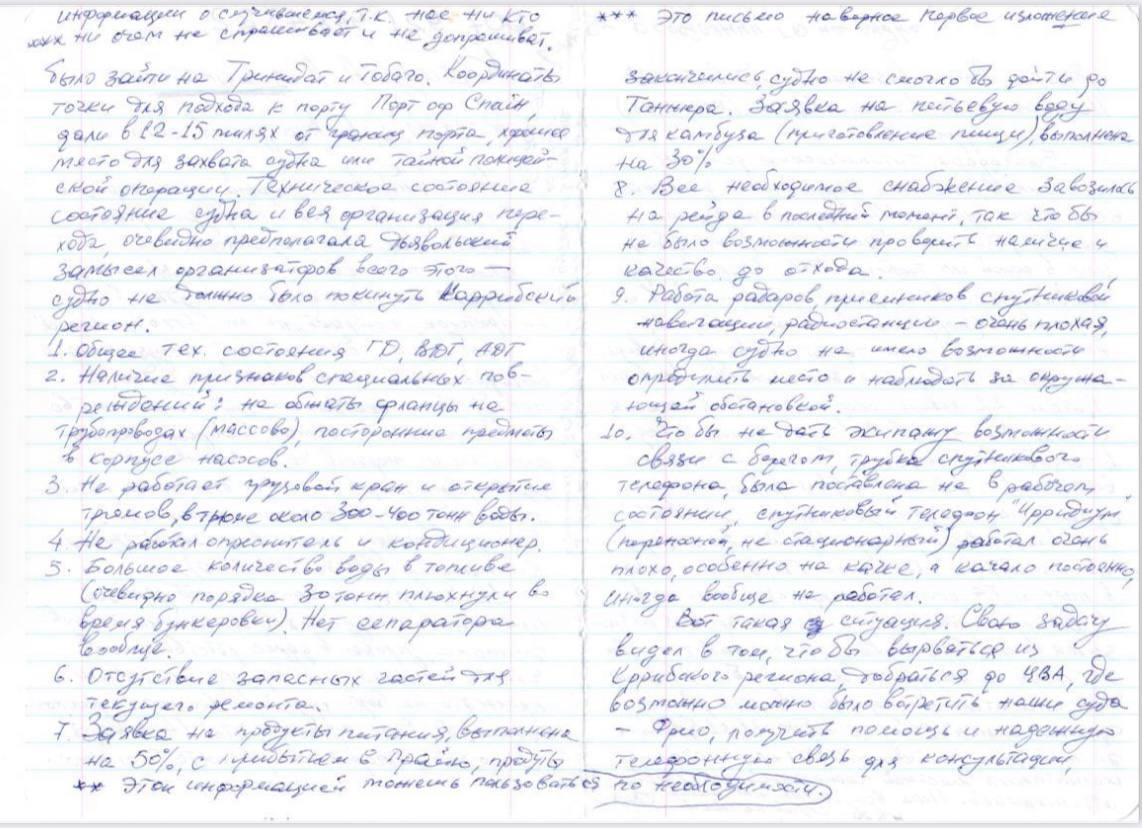 информации о случившемся, т.к. нас ни кто
*** ни очем не спрашивает и не допрашиват.
было зайти на Тринидат и Тобаго. Координаты
точки для подхода к порту Порт оф Спайн,
дали в 12-15 милях от границ порта, хорошее
место для захвата судна или тайной полицей-
ской операции. Техническое состояние
состояние судна и вся организация пере-
хода, очевидно предполагала дьявольский
замысел организаторов всего этого —
судно не должно было покинуть Каррибский
регион.
1. Общее тех. состояния ГД, ВДГ, АДГ
2. Наличие признаков специальных пов-
реждений: не обжаты фланцы на
трубопроводах (массово), посторонние предметы
в корпусе насосов.
3. Не работает грузовой кран и открытие
трюмов, в трюме около 300-400 тонн воды.
4. Не работал опреснитель и кондиционер.
5. Большое количество воды в топливе
(очевидно порядка 30 тонн плюхнули во
время бункеровки). Нет сепаратора
вообще.
6. Отсутствие запасных частей для
текущего ремонта.
7. Заявка на продукты питания, выполнена
на 50%, с прибытием в Прайю, продукты
** Этой информацией можешь пользоваться по необходимости.
*** Это письмо наверное первое изложение
закончились, судно не смогло бы дойти до
Танжера. Заявка на питьевую воду
для камбуза (приготовление пищи), выполнена
на 30%
8. Все необходимое снабжение завозилось
на рейде в последний момент, так что бы
не было возможности проверить наличие и
качество до отхода.
9. Работа радаров, приемников спутниковой
навигации, радиостанции – очень плохая,
иногда судно не имело возможности
определить место и наблюдать за окружа-
ющей обстановкой.
10. Что бы не дать экипажу возможности
связи с берегом, трубка спутникового
телефона, была поставлена не в рабочем
состоянии, спутниковый телефон "Ирридиум"
(переносной, не стационарный) работал очень
плохо, особенно на качке, а качало постоянно,
иногда вообще не работал.
Вот такая ситуация. Свою задачу
видел в том, что бы вырваться из
Крибского региона, добраться до ЦВА, где
возможно можно было встретить наши суда
– Фрио, получить помощь и надежную
телефонную связь для консультации,